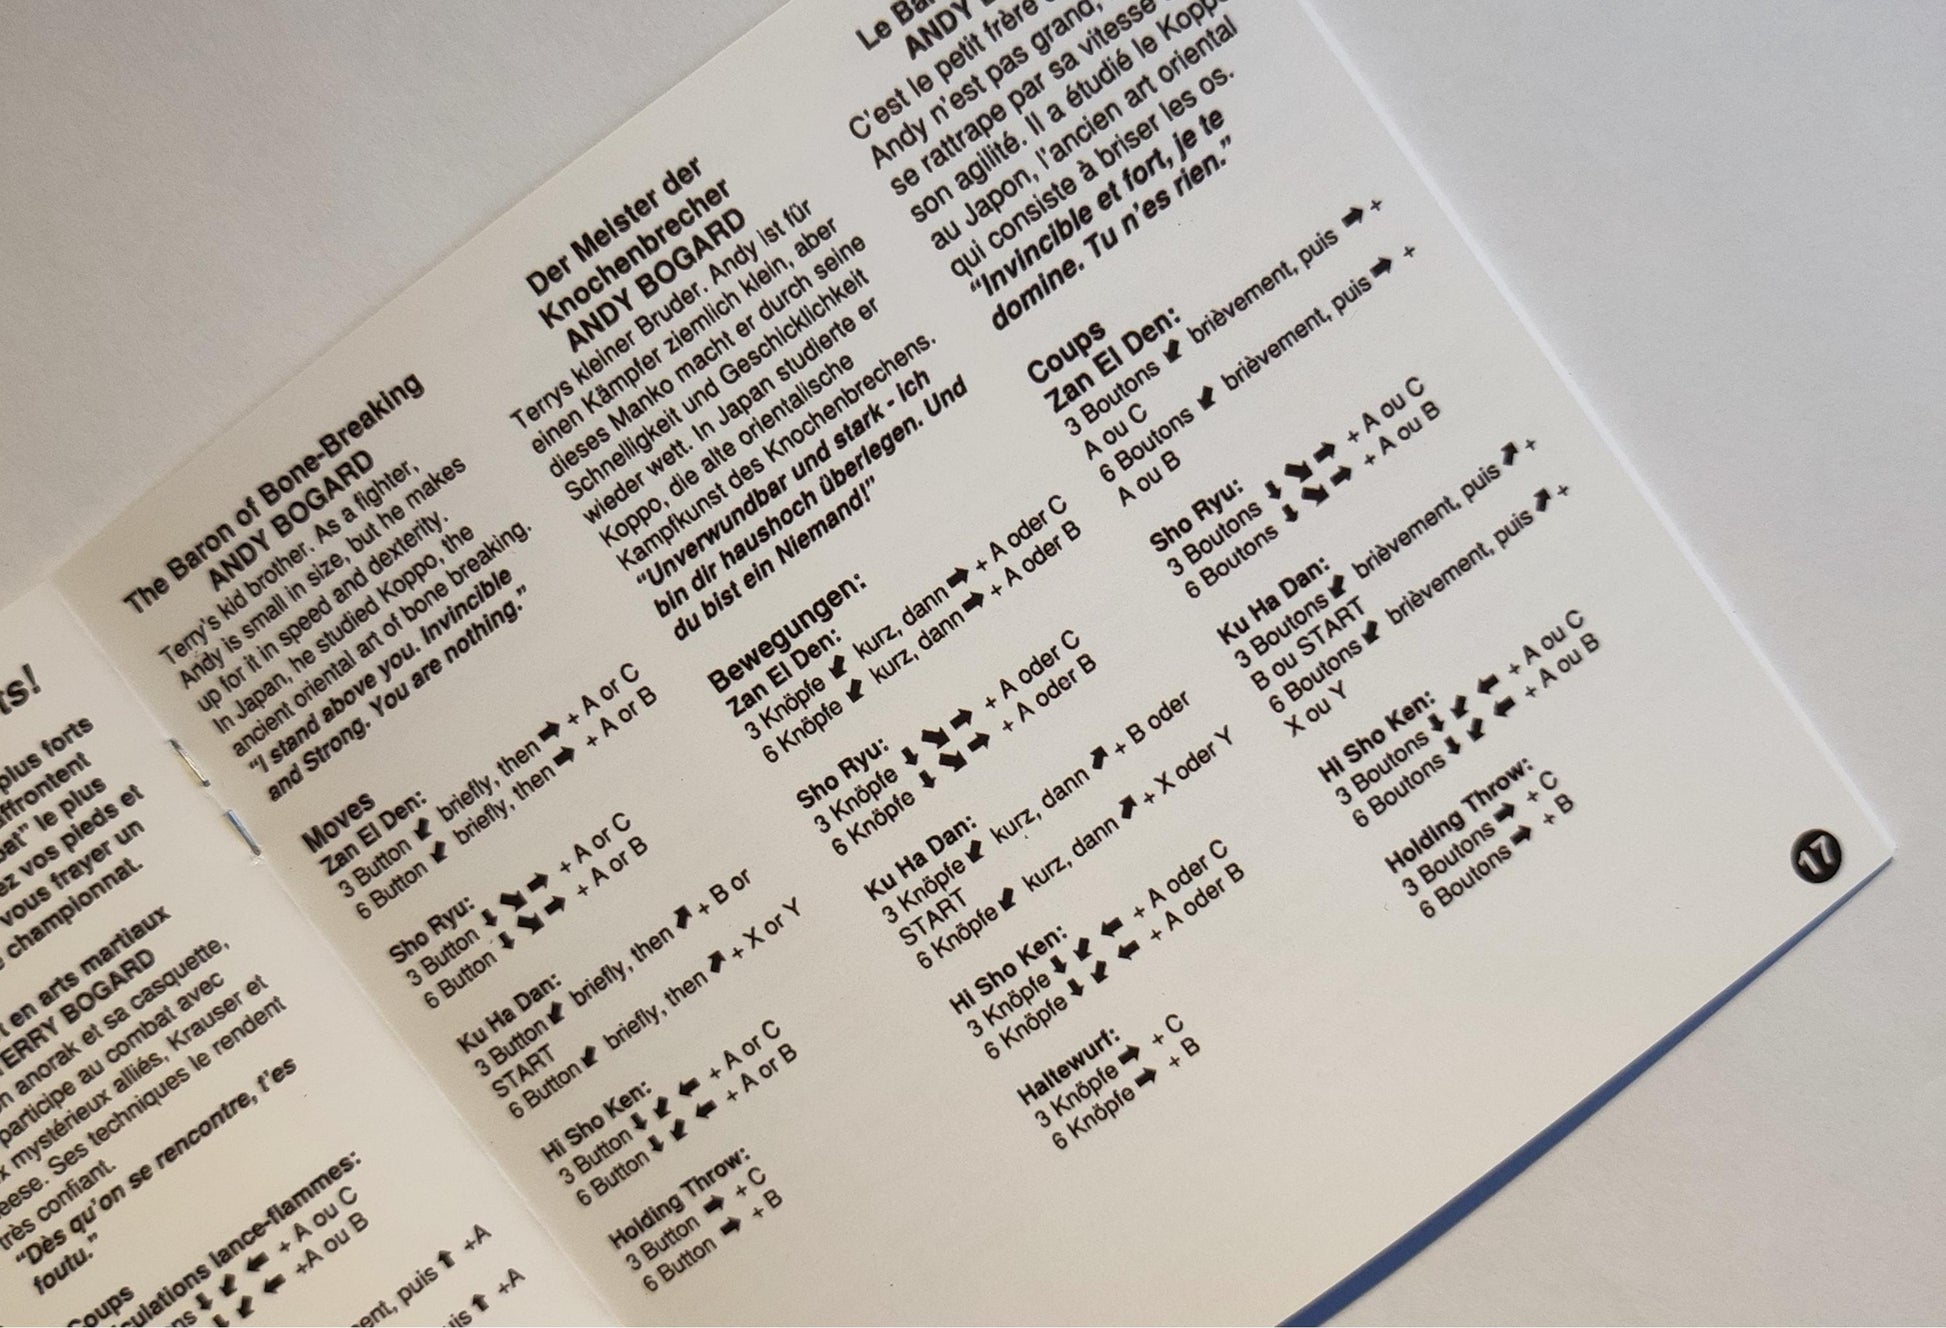 ts!
plus forts
affrontent
bat" le plus
ez vos pieds et
vous frayer un
championnat.
t en arts martiaux
ERRY BOGARD
anorak et sa casquette,
participe au combat avec
mystérieux alliés, Krauser et
eese. Ses techniques le rendent
très confiant.
"Dès qu'on se rencontre, t'es
foutu."
Coups
culations lance-flammes:
⬇ ⬋ ⬅ + A ou C
⬇ ⬋ ⬅ +A ou B
puis ⬆ +A
puis ⬆ +A
The Baron of Bone-Breaking
ANDY BOGARD
Terry's kid brother. As a fighter,
Andy is small in size, but he makes
up for it in speed and dexterity.
In Japan, he studied Koppo, the
ancient oriental art of bone breaking.
"I stand above you. Invincible
and Strong. You are nothing."
Moves
Zan El Den:
3 Button ⬋ briefly, then ➡ + A or C
6 Button ⬋ briefly, then ➡ + A or B
Sho Ryu:
3 Button ⬇ ⬊ ➡ + A or C
6 Button ⬇ ⬊ ➡ + A or B
Ku Ha Dan:
3 Button ⬋ briefly, then ⬈ + B or
START
6 Button ⬋ briefly, then ⬈ + X or Y
Hi Sho Ken:
3 Button ⬇ ⬋ ⬅ + A or C
6 Button ⬇ ⬋ ⬅ + A or B
Holding Throw:
3 Button ➡ + C
6 Button ➡ + B
Der Meister der
Knochenbrecher
ANDY BOGARD
Terrys kleiner Bruder. Andy ist für
einen Kämpfer ziemlich klein, aber
dieses Manko macht er durch seine
Schnelligkeit und Geschicklichkeit
wieder wett. In Japan studierte er
Koppo, die alte orientalische
Kampfkunst des Knochenbrechens.
"Unverwundbar und stark - ich
bin dir haushoch überlegen. Und
du bist ein Niemand!"
Bewegungen:
Zan El Den:
3 Knöpfe ⬋ kurz, dann ➡ + A oder C
6 Knöpfe ⬋ kurz, dann ➡ + A oder B
Sho Ryu:
3 Knöpfe ⬇ ⬊ ➡ + A oder C
6 Knöpfe ⬇ ⬊ ➡ + A oder B
Ku Ha Dan:
3 Knöpfe ⬋ kurz, dann ⬈ + B oder
START
6 Knöpfe ⬋ kurz, dann ⬈ + X oder Y
Hi Sho Ken:
3 Knöpfe ⬇ ⬋ ⬅ + A oder C
6 Knöpfe ⬇ ⬋ ⬅ + A oder B
Haltewurf:
3 Knöpfe ➡ + C
6 Knöpfe ➡ + B
Le
ANDY
C'est le petit frère
Andy n'est pas grand,
se rattrape par sa vitesse
son agilité. Il a étudié le Koppo
au Japon, l'ancien art oriental
qui consiste à briser les os.
"Invincible et fort, je te
domine. Tu n'es rien."
Coups
Zan El Den:
3 Boutons ⬋ brièvement, puis ➡ +
A ou C
6 Boutons ⬋ brièvement, puis ➡ +
A ou B
Sho Ryu:
3 Boutons ⬇ ⬊ ➡ + A ou C
6 Boutons ⬇ ⬊ ➡ + A ou B
Ku Ha Dan:
3 Boutons ⬋ brièvement, puis ⬈ +
B ou START
6 Boutons ⬋ brièvement, puis ⬈ +
X ou Y
Hi Sho Ken:
3 Boutons ⬇ ⬋ ⬅ + A ou C
6 Boutons ⬇ ⬋ ⬅ + A ou B
Holding Throw:
3 Boutons ➡ + C
6 Boutons ➡ + B
17